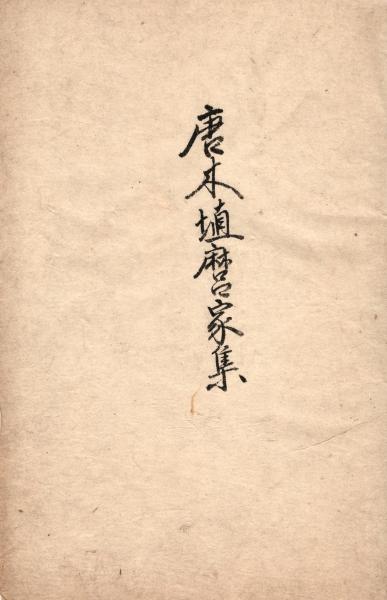 唐木埴麿家集